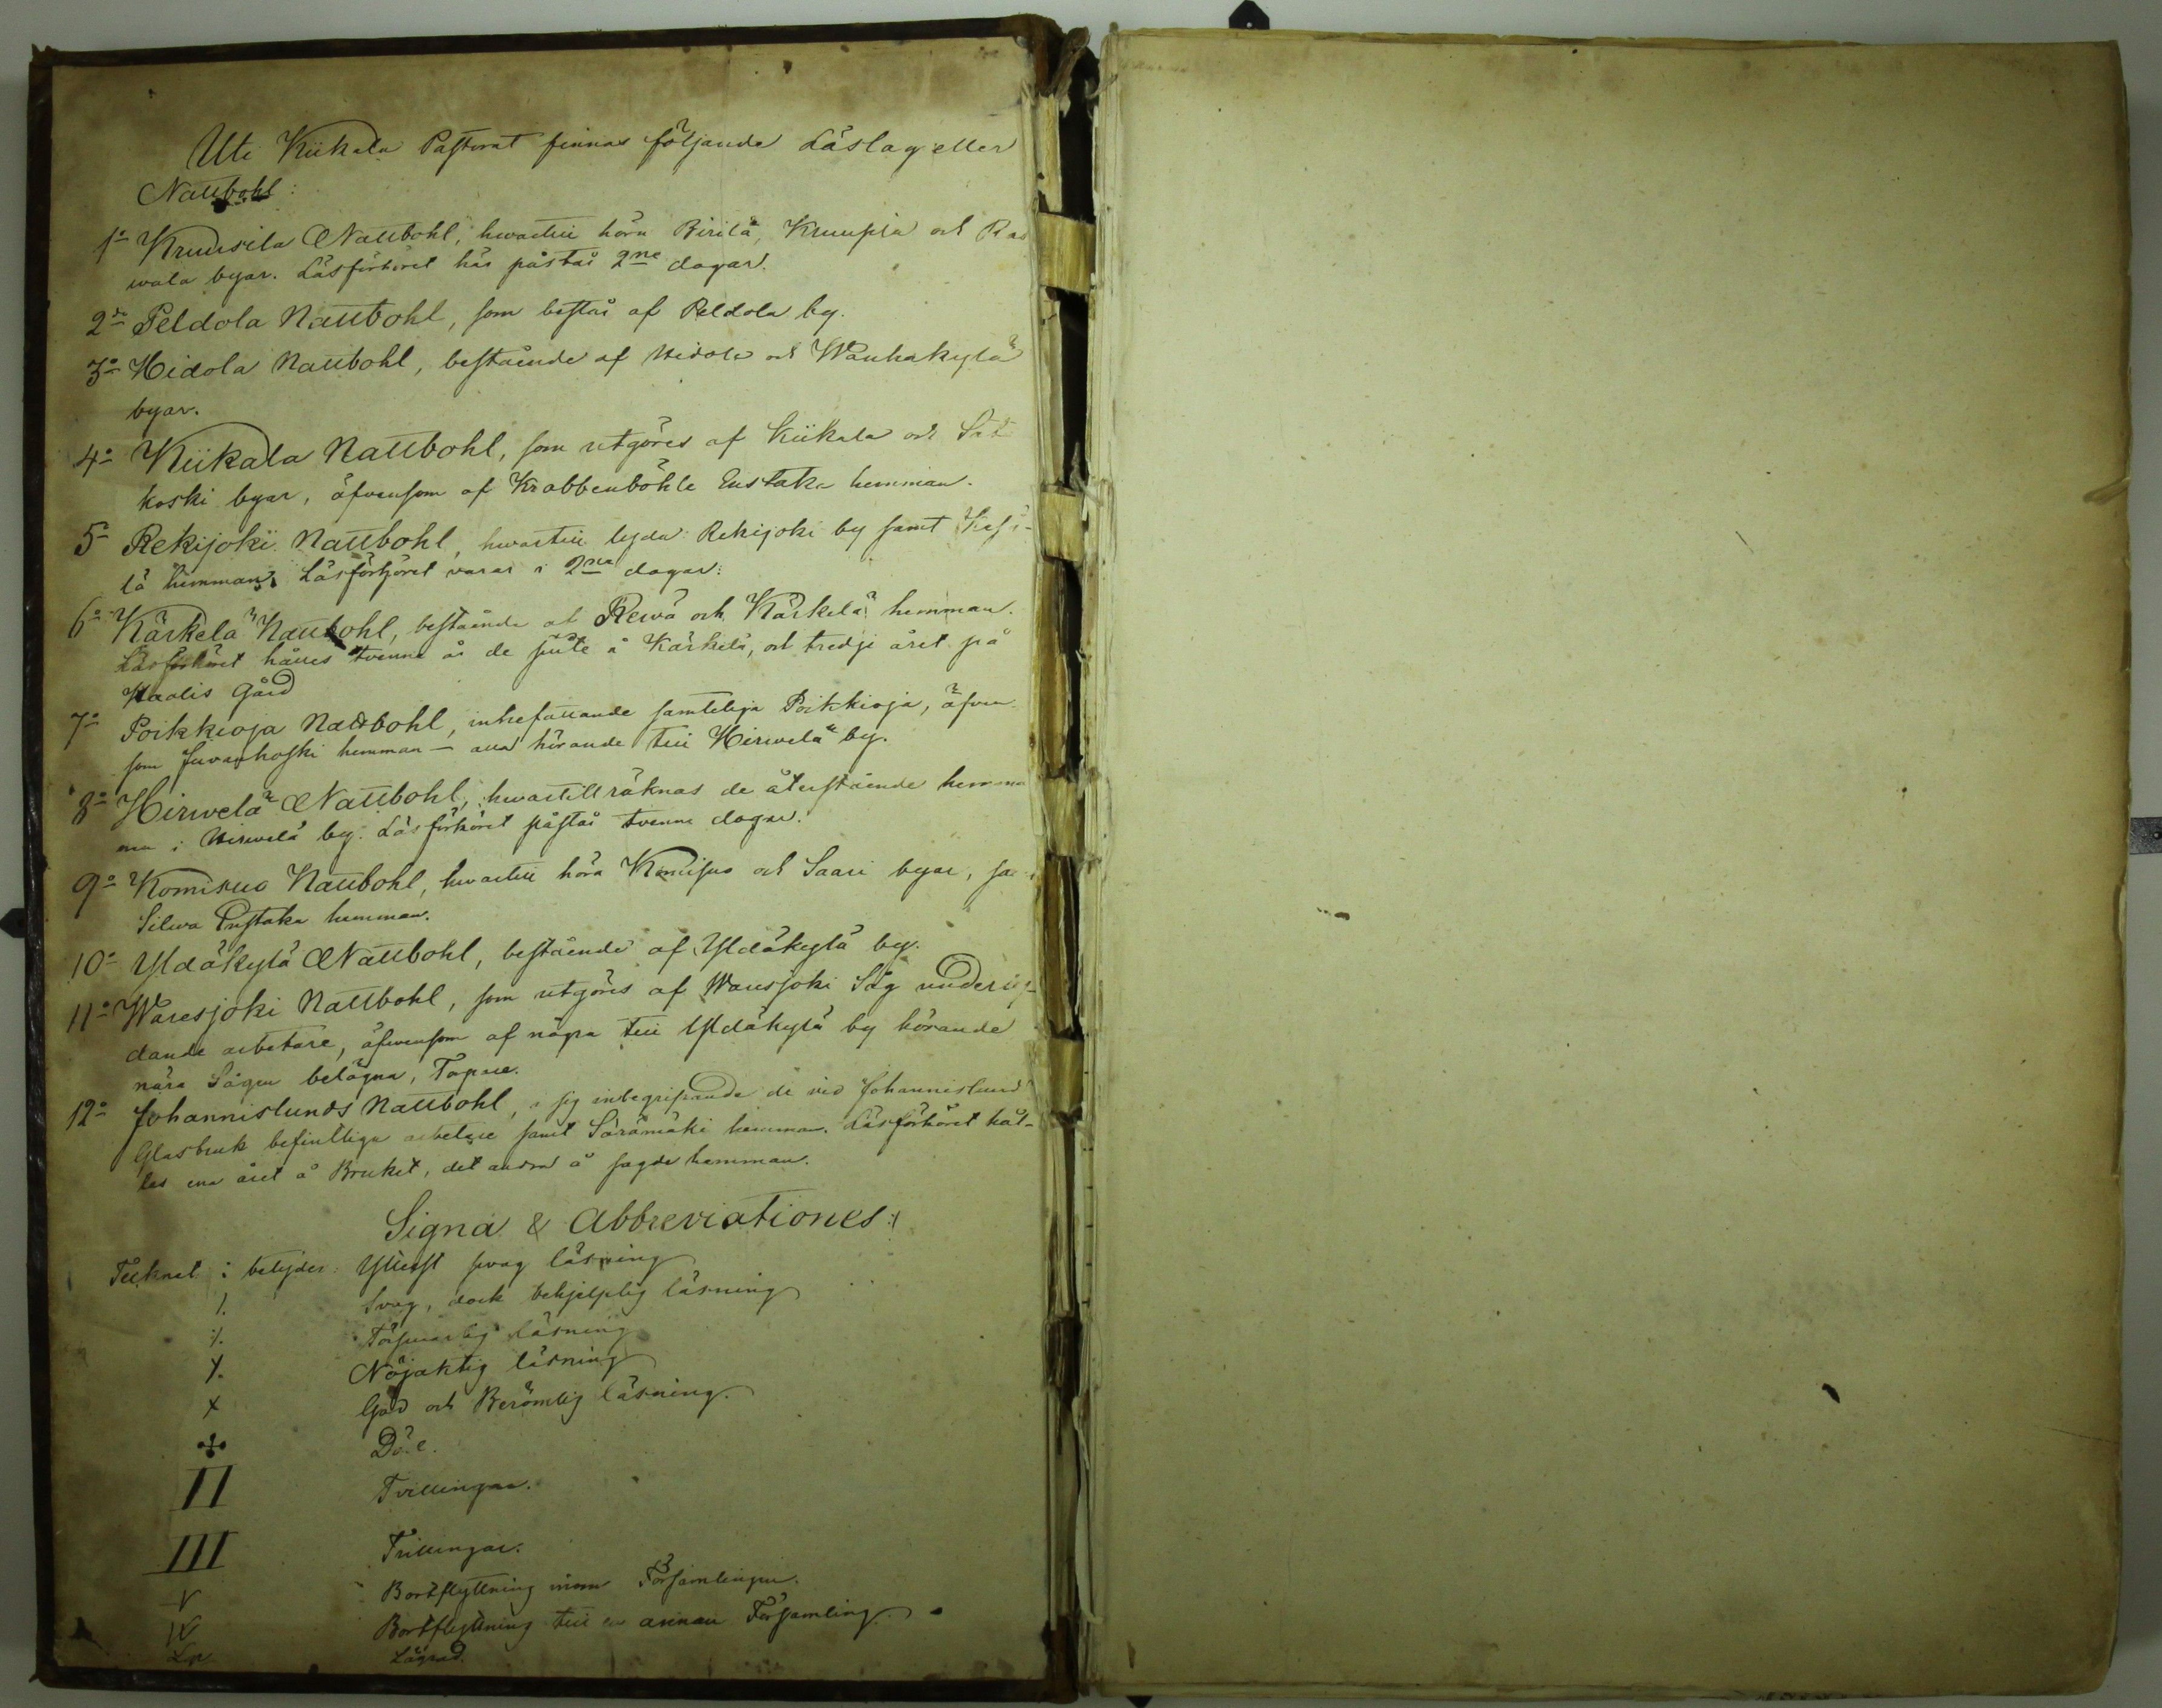 Uti Kiikala Pastorat finnas följande Läslag eller
Nattbohl:
1o Kruusila Nattbohl, hwartill höra Pirilä, Kruupia och Ra
wala byar. Läsförhöret här påstår 2ne dagar.
2do Peldola Nattbohl, som består af Peldola by.
3o Hidola Nattbohl, bestående af Hidola och Wanhakylä
byar.
4o Kiikala Nattbohl, som utgöres af Kiikala och
koski byar, äfvensom af Krabbenböhle Enstaka hemman.
5o Rekijoki Nattbohl, hwartill lyda Rekijoki by samt
lä hemman. Läsförhöret varar i 2ne dagar.
6o Kärkelä Nattbohl, bestående af Rewä och Kärkelä hemman.
Läsförhöret hålles tvenne år de suite å Kärkelä, och tredje året på
Haalis Gård
7o Poikkioja Nattbohl, inbefattande samteliga Poikkioja, äfven
som Juvankoski hemman — alla hörande till Hirwelä by.
8o Hirwelä Nattbohl, hwartill räknas de återstående hemma
nen i Hirwelä by. Läsförhöret påstår tvenne dagar.
9o Komisuo Nattbohl, hwartill höra Komisuo och Saari byar, sa
Silwa Enstaka hemman.
10o Yldäkylä Nattbohl, bestående af Yldäkylä by.
11o Waresjoki Nattbohl, som utgöres af Waresjoki Såg underly-
dande arbetare, äfwensom af några till Yldäkylä by hörande
nära Sågen belägna, Torpare.
12o Johannislunds Nattbohl, i sig inbegripande de vid Johannislund
Glasbruk befintliga arbetare samt Säramäki hemman. Läsförhöret hål-
les ena året å Bruket, det andra å sagde hemman.
Signa & Abbreviationes:
Tecknet : betyder: Ytterst svag läsning
/. Svag, dock behjelplig läsning
:/. Försvarlig läsning
Y. Nöjaktig läsning
X God och Berömlig läsning.
÷ Döde.
II Tvillingar.
III Trillingar.
V Bortflyttning inom Församlingen.
W Bortflyttning till en annan Församling.